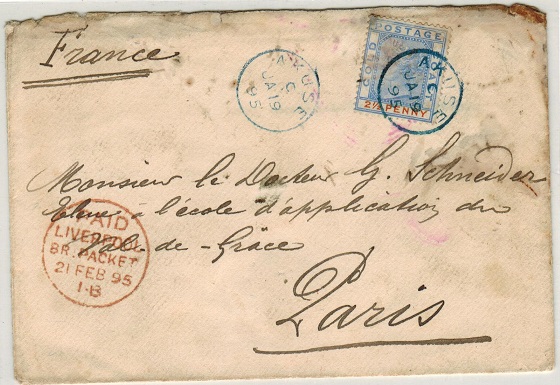 France
AKUSE
C
JA 19
95
POSTAGE
GOLD COAST
2½ PENNY
AKUSE
C
JA 19
95
Monsieur le Docteur G. Schneider
Elève à l'école d'application du
Val-de-Grâce
Paris
PAID
LIVERPOOL
BR. PACKET
21 FEB 95
1-B